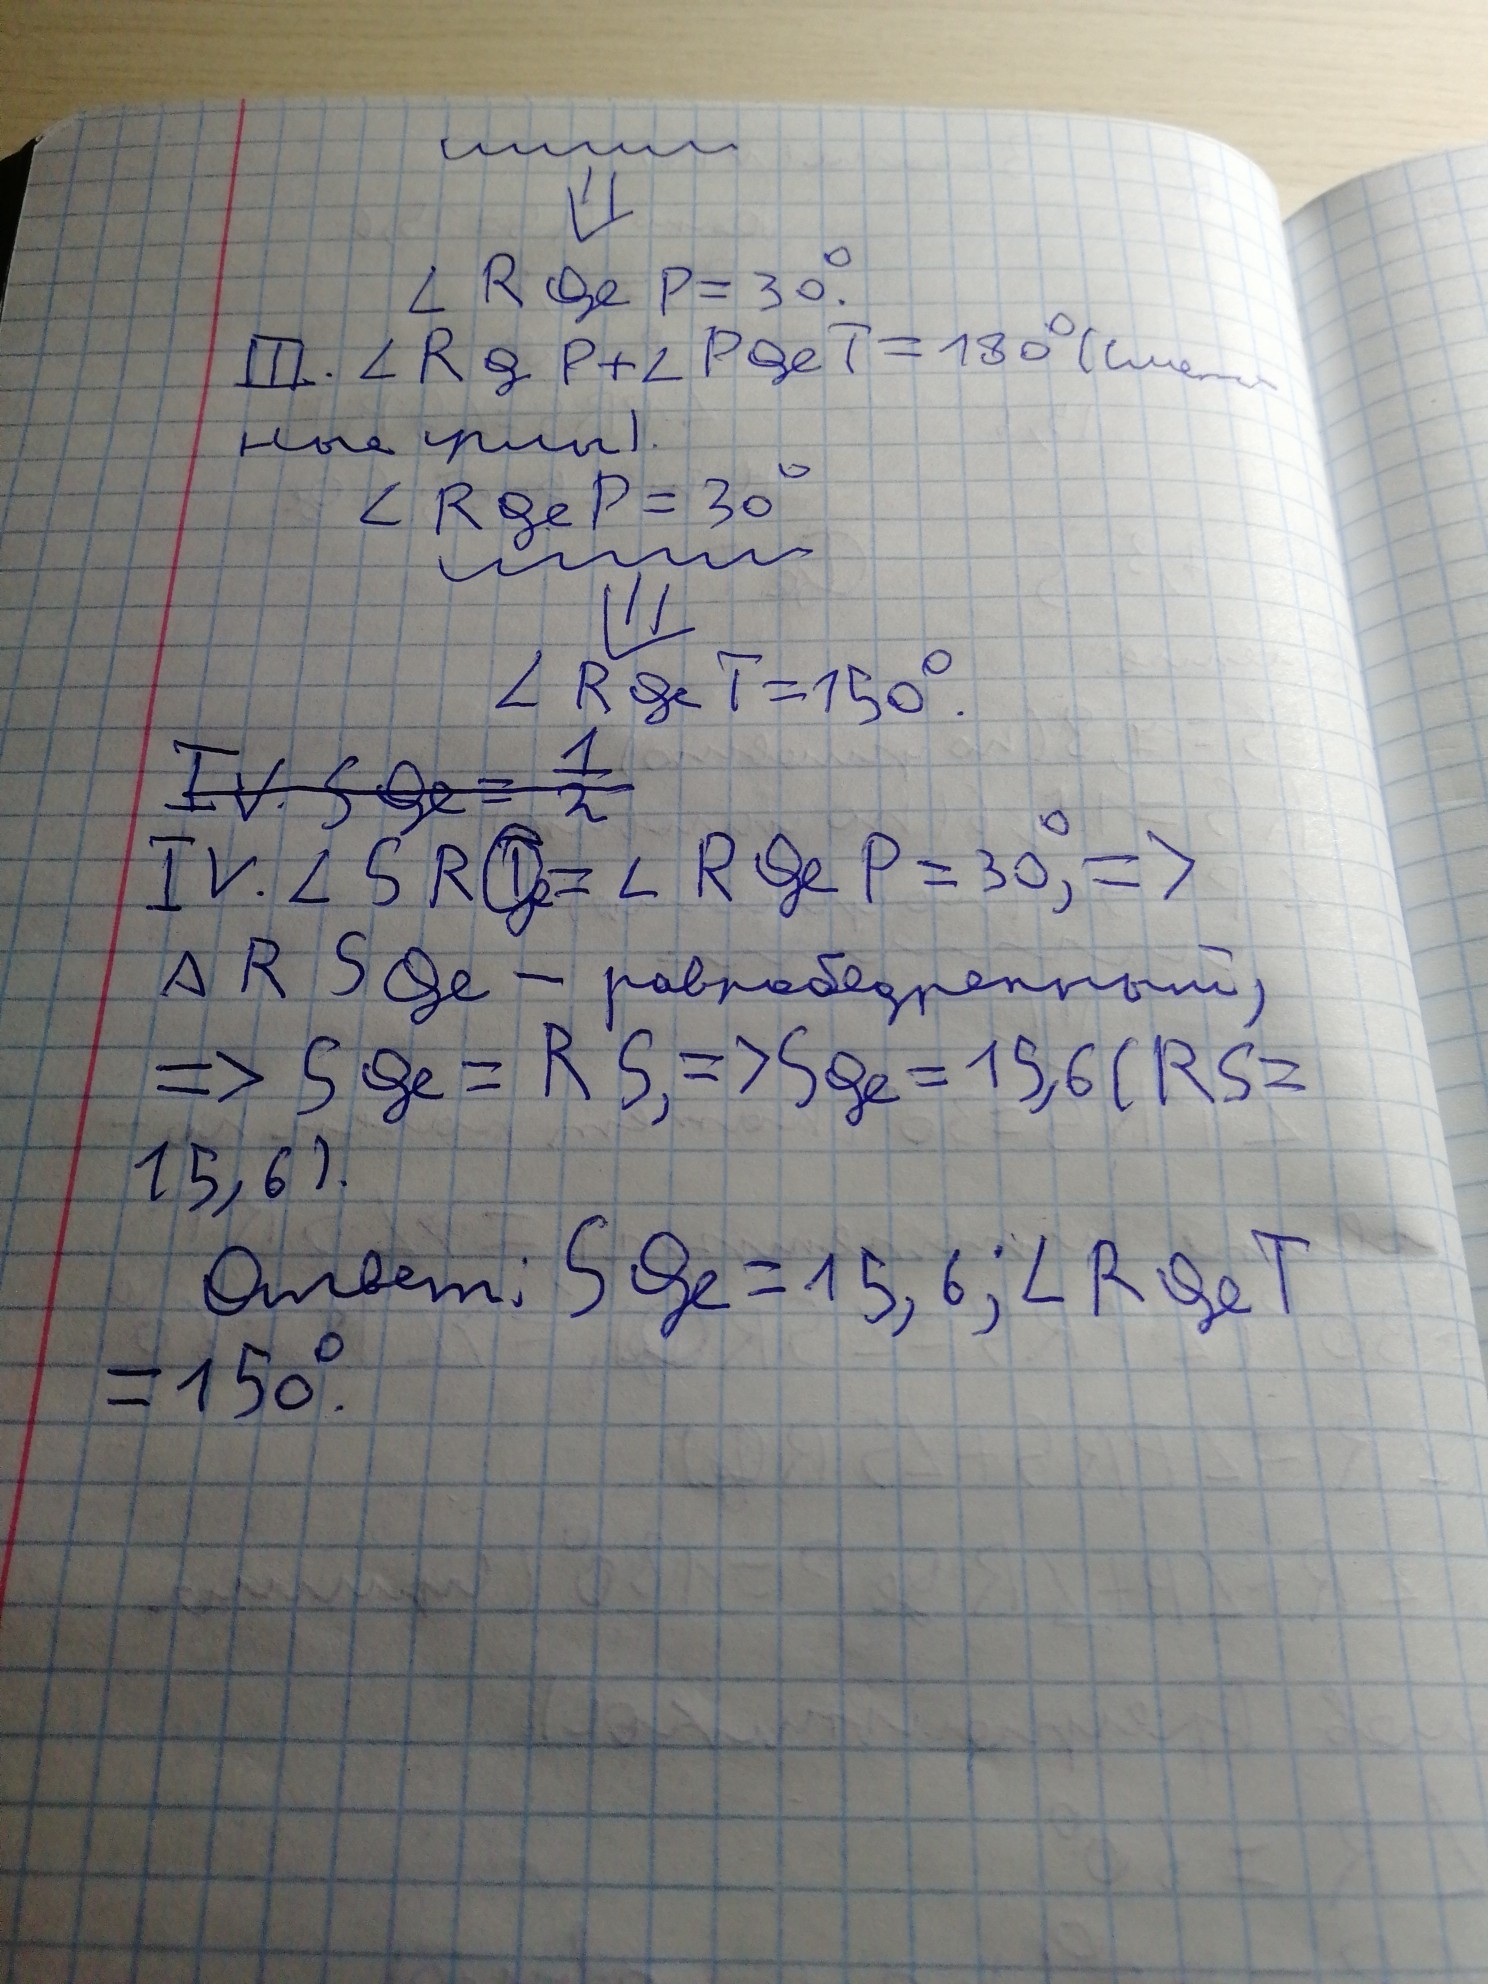 ∠RQeP=30°.
III. ∠RQP+∠PQeT=180°(смеж
ные углы).
∠RQeP=30°
∠RQeT=150°.
IV. SQe=1/2
IV. ∠SRQe=∠RQeP=30°, =>
△RSQe – равнобедренный,
=> SQe=RS, => SQe=15,6(RS=
15,6).
Ответ: SQe=15,6; ∠RQeT
=150°.